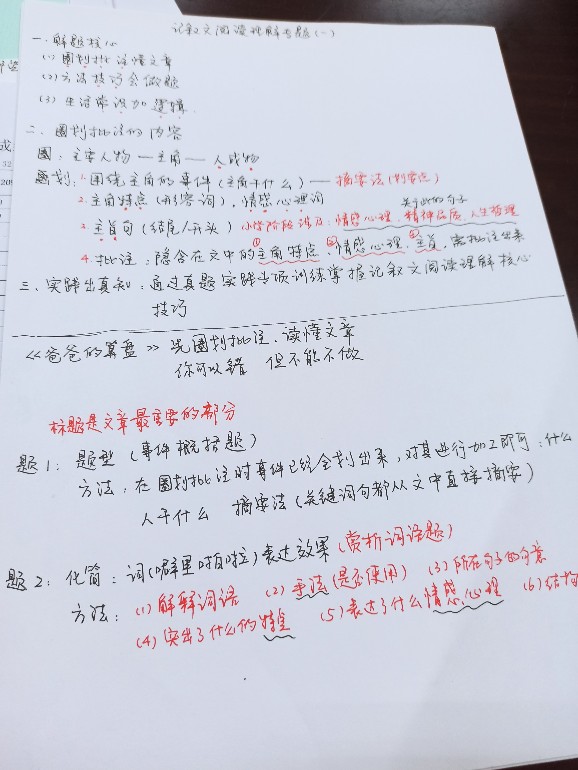 记叙文阅读理解专题(一)
一、解题核心
(1) 圈划批注懂文章
(2) 方法技巧会做题
(3) 生活常识加逻辑
二、圈划批注的内容
圈:主要人物 — 主角 — 人或物
划:1.围绕主角的事件(主角干什么)— 摘要法(划要点)
2.主角特点(形容词),情感心理词
关于此的句子
3.主旨句(结尾/开头)小学阶段涉及:情感心理、精神品质、人生哲理
4.批注:隐含在文中的①主角特点、②情感心理、③主旨,需批注出来
三、实践出真知:通过真题实践专项训练掌握记叙文阅读理解核心
技巧
《爸爸的算盘》先圈划批注、读懂文章
你可以错 但不能不做
标题是文章最重要的部分
题1:题型(事件概括题)
方法:在圈划批注时事件已经全划出来,对其进行加工即可:什么
人干什么 摘要法(关键词句都从文中直接摘要)
题2:化简:词(噼里啪啦)表达效果(赏析词语题)
方法:(1) 解释词语 (2) 手法(是否使用) (3) 所在句子的句意
(4) 突出了什么的特点 (5) 表达了什么情感、心理 (6) 结构